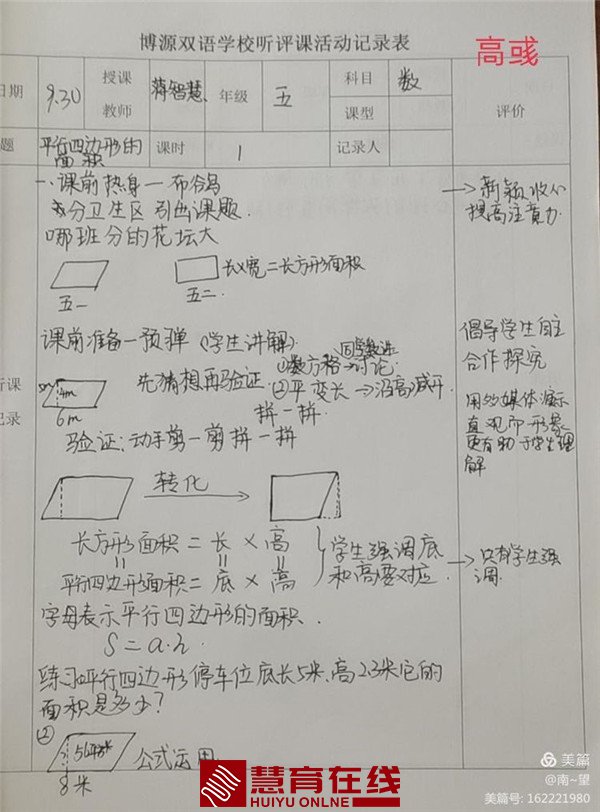 博源双语学校听评课活动记录表
高彧
日期 9.30 授课教师 蒋智慧 年级 五 科目 数 评价
课型
题 平行四边形的面积 课时 1 记录人
一、课前热身一布谷鸟
分卫生区 引出课题.
哪班分的花坛大
长×宽=长方形面积
五一 五二.
→新颖
提高注意力
课前准备一预弹 (学生讲解)
先猜想再验证. ①数方格→讨论.
②平变长→沿高减开
拼一拼.
4m
6m
验证:动手剪一剪拼一拼
听课
记录
倡导学生自主
合作探究
用多媒体演示
直观而形象
更有助于学生理
解
转化
长方形面积 = 长 × 高
平行四边形面积 = 底 × 高
学生强调底
和高要对应.
→只有学生强
调.
字母表示平行四边形的面积.
S=a.h.
练习①平行四边形停车位底长5米,高2.3米它的
面积是多少?
② 公式运用
8米
慧育在线
HUIYU ONLINE
美篇
@南~望
美篇号: 162221980